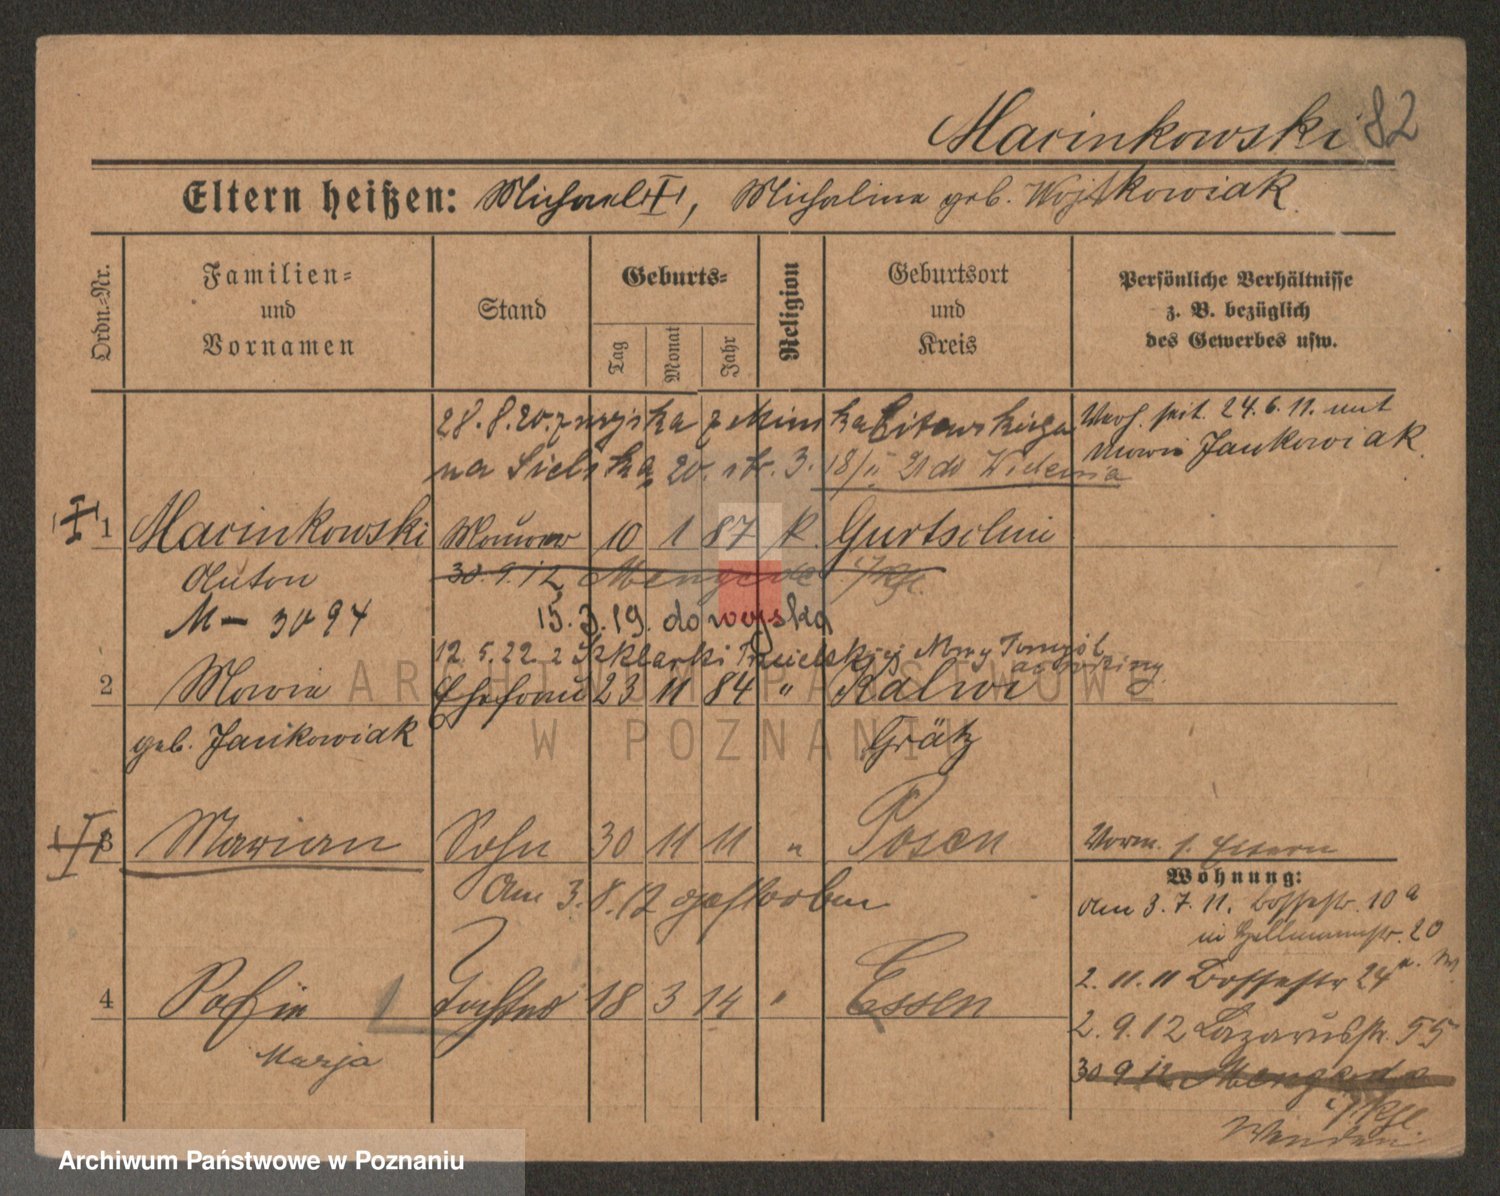 Marinkowski 82
Eltern heißen: Michael I, Michalina geb. Wojtkowiak
Ordn.-Nr.
Familien- und Vornamen
Stand
Geburts-
Tag
Monat
Jahr
Religion
Geburtsort und Kreis
Persönliche Verhältnisse
z. B. bezüglich
des Gewerbes usw.
28.8.20. z wojska z Mińska Litewskiego
na Sielska 20. str. 3. 18/II 21 do Widemia
Verh. seit 24.6.11. mit
Maria Jankowiak
1 Marinkowski Maurer 10 1 87 k. Gurtschin
Anton 30.9.12 Mengede
M – 3094 15.3.19. do wojska
12.5.22. z Szklarki Trzcielskiej Nowy Tomyśl
2 Maria Ehefrau 23 11 84 " Kalwi
geb. Jankowiak Grätz
3 Marian Sohn 30 11 11 " Posen
Vorm. s. Eltern
Am 3.8.12 gestorben
Wohnung:
Am 3.7.11. Bossestr. 10a
in Hellmannstr. 20
2.11.11 Bossestr 24
4 Sofie Tochter 18 3 14 " Essen
Marja
2.9.12 Lazarusstr. 55
30 9 12 Mengede
Wenden
ARCHIWUM PAŃSTWOWE
W POZNANIU
Archiwum Państwowe w Poznaniu